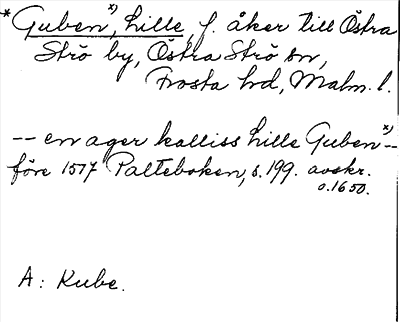 * Guben*), Lille, f. åker till Östra
Strö by, Östra Strö sn,
Frosta hd, Malm. l.
-- en ager kalliss Lille Guben*) --
före 1517 Palteboken, s. 199. avskr.
o. 1650.
A: Kube.